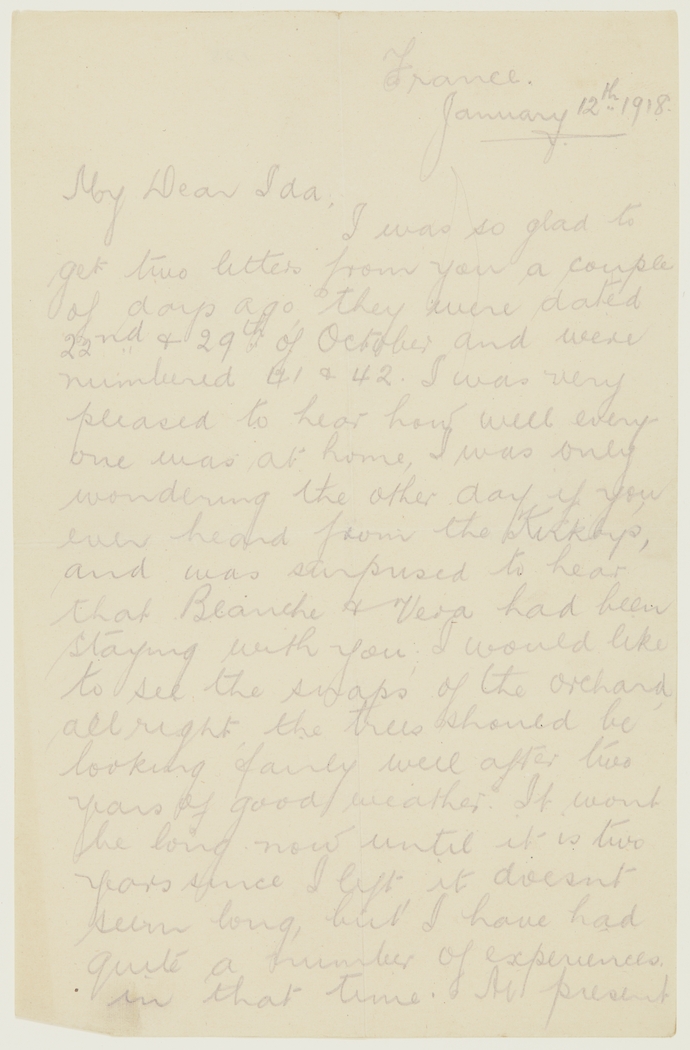 France.
January 12th 1918.
My Dear Ida,
I was so glad to
get two letters from you a couple
of days ago they were dated
22nd & 29th of October and were
numbered 41 & 42. I was very
pleased to hear how well every
one was at home, I was only
wondering the other day if you
ever heard from the
and was surprised to hear
that Blanche & Vera had been
staying with you. I would like
to see the snaps of the orchard
all right, the trees should be
looking fairly well after two
years of good weather. It wont
be long now until it is two
years since I left it doesnt
seem long, but I have had
quite a number of experiences
in that time. At present